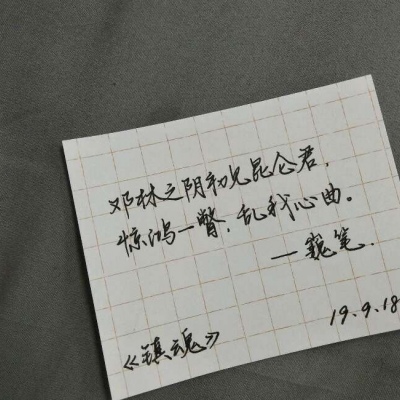 邓林之阴初见昆仑君，
惊鸿一瞥，乱我心曲。
—巍笔.
《镇魂》
19.9.18